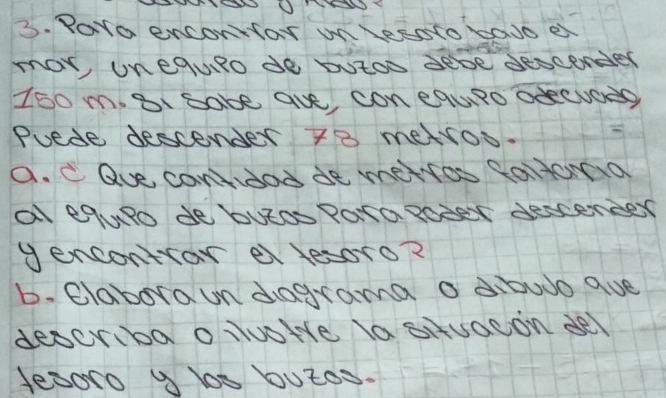 3. Para encontrar un tesoro bajo el
mar, un equipo de buzos debe descender
150 m. Si sabe que, con equipo adecuado,
Puede descender 78 metros.
a. ¿ Que cantidad de metros faltaria
al equipo de buzos Para poder descender
y encontrar el tesoro?
b. Elabora un diagrama o dibujo que
describa o ilustre la situacón del
tesoro y los buzos.